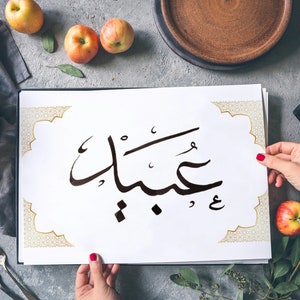 عُبيد